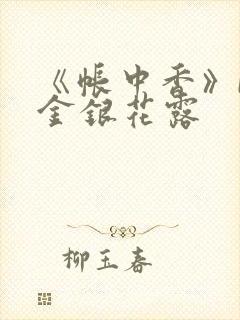 《帐中香》
金银花露
柳玉春